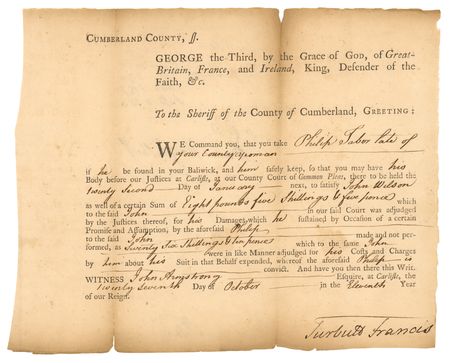 CUMBERLAND COUNTY, ſſ.
GEORGE the Third, by the Grace of GOD, of Great-
Britain, France, and Ireland, King, Defender of the
Faith, &c.
To the Sheriff of the County of Cumberland, GREETING:
WE Command you, that you take Philip Tabor late of
your County yeoman
if he be found in your Bailiwick, and him ſafely keep, ſo that you may have his
Body before our Juſtices at Carliſle, at our County Court of Common Pleas, there to be held the
twenty Second Day of January next, to ſatisfy John Wilson
as well of a certain Sum of Eight pounds five Shillings & five pence which
to the ſaid John in our ſaid Court was adjudged
by the Juſtices thereof, for his Damages, which he ſuſtained by Occaſion of a certain
Promiſe and Aſſumption, by the aforeſaid Philip
to the ſaid John made and not per-
formed, as Seventy Six Shillings & ten pence which to the ſame John
were in like Manner adjudged for his Coſts and Charges
by him about his Suit in that Behalf expended, whereof the aforeſaid Philip is
convict. And have you then there this Writ.
WITNESS John Armstrong Eſquire, at Carliſle, the
twenty seventh Day of October in the Eleventh Year
of our Reign.
Turbutt Francis